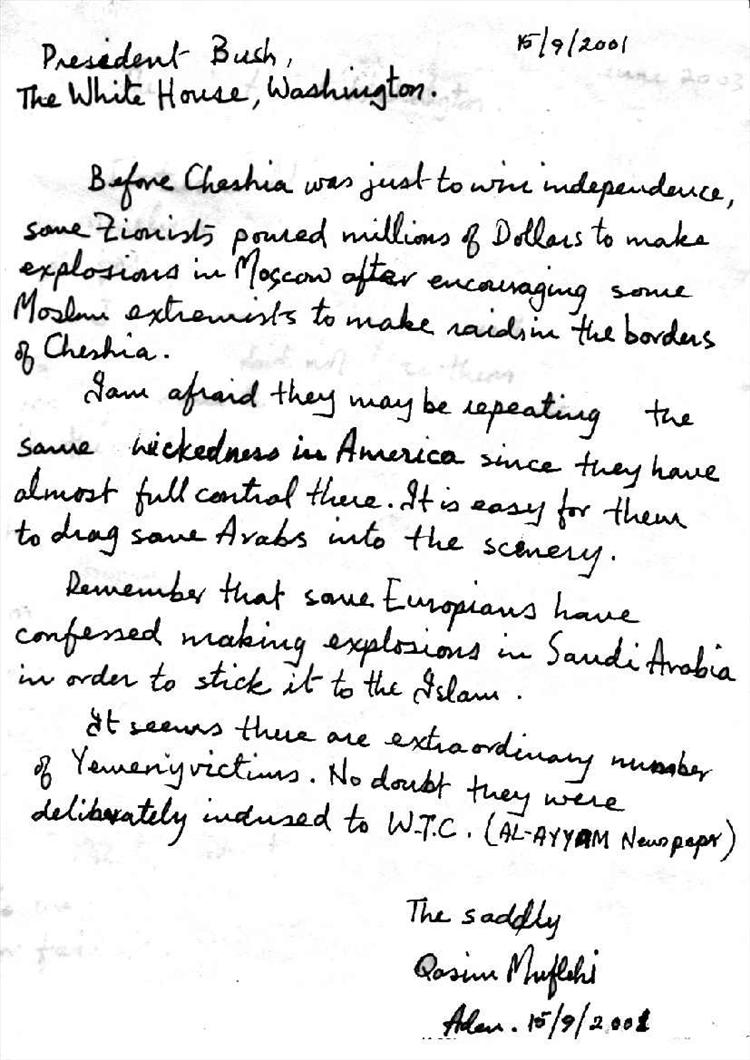 15/9/2001
President Bush,
The White House, Washington.
Before Cheshia was just to win independence,
some Zionists poured millions of Dollars to make
explosions in Moscow after encouraging some
Moslem extremists to make raids in the borders
of Cheshia.
I am afraid they may be repeating the
same wickedness in America since they have
almost full control there. It is easy for them
to drag some Arabs into the scenery.
Remember that some Europians have
confessed making explosions in Saudi Arabia
in order to stick it to the Islam.
It seems there are extraordinary number
of Yemeny victims. No doubt they were
deliberately indused to W.T.C. (AL-AYYAM Newspapr)
The saddly
Qasim Muflehi
Aden. 15/9/2001